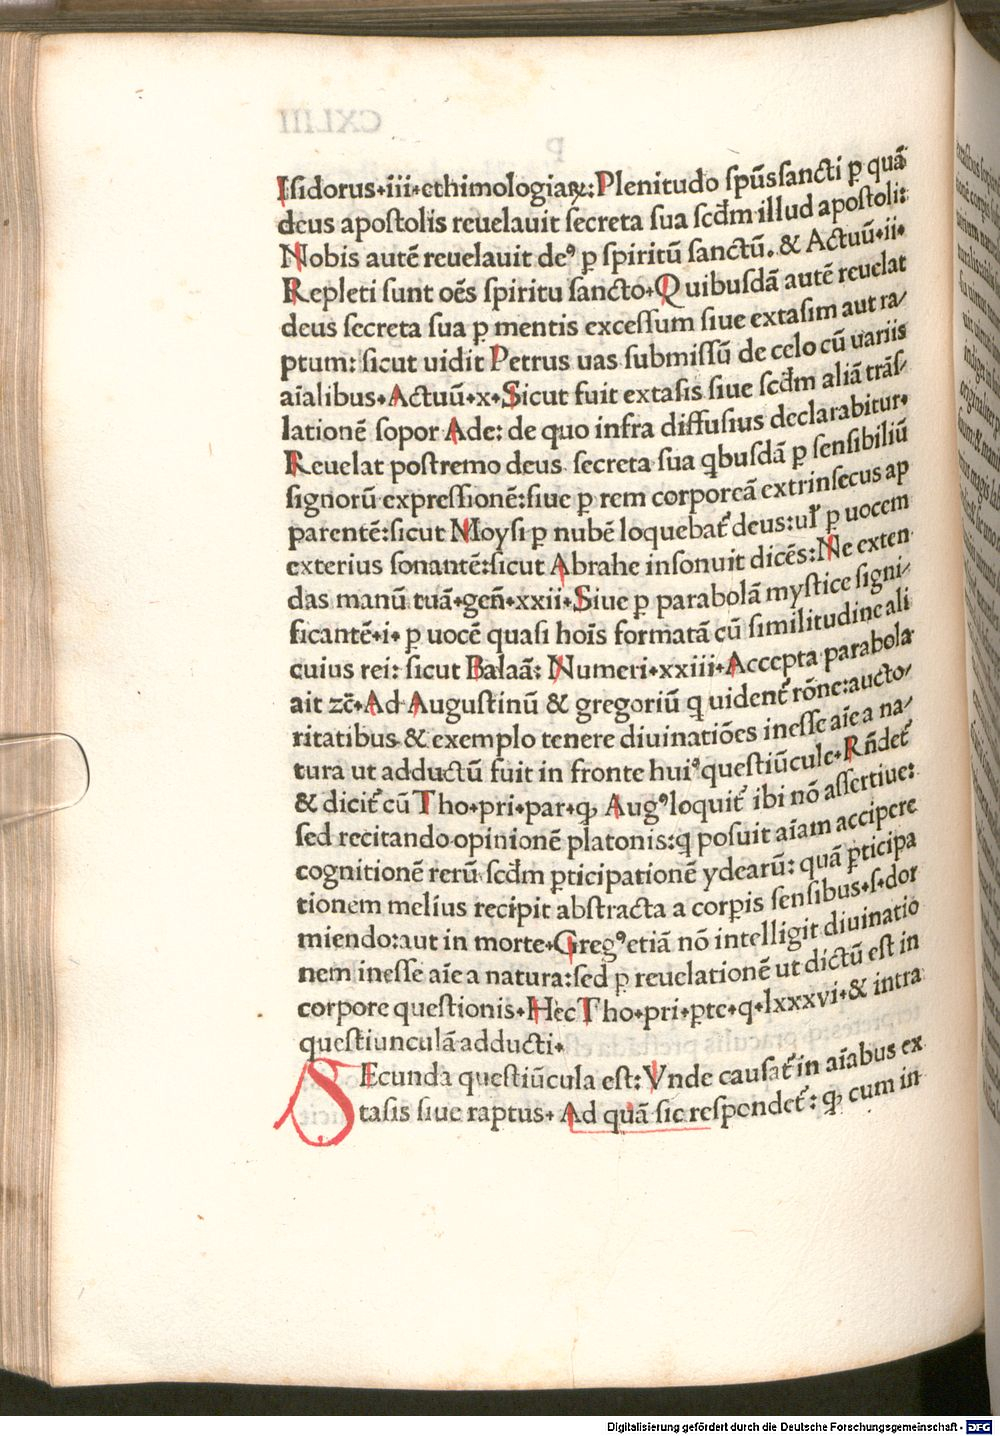 Isidorus.iii.ethimologiaꝝ: Plenitudo spūssancti ꝑ quā
deus apostolis reuelauit secreta sua scd̄m illud apostoli:
Nobis autē reuelauit deꝰ ꝑ spiritū sanctū. & Actuū.ii.
Repleti sunt oēs spiritu sancto. Quibusdā autē reuelat
deus secreta sua ꝑ mentis excessum siue extasim aut ra/
ptum: sicut uidit Petrus uas submissū de celo cū uariis
aīalibus. Actuū.x. Sicut fuit extasis siue scd̄m aliā trās/
lationē sopor Ade: de quo infra diffusius declarabitur.
Reuelat postremo deus secreta sua qbusdā ꝑ sensibiliū
signorū expressionē: siue ꝑ rem corporeā extrinsecus ap
parentē: sicut Moysi ꝑ nubē loquebat̄ deus: ul̄ ꝑ uocem
exterius sonantē: sicut Abrahe insonuit dicēs: Ne exten
das manū tuā. gen̄.xxii. Siue ꝑ parabolā mystice signi/
ficantē.i. ꝑ uocē quasi hoīs formatā cū similitudine ali
cuius rei: sicut Balaā: Numeri.xxiii. Accepta parabola
ait zc̄. Ad Augustinū & gregoriū q uident̄ rōne: aucto/
ritatibus & exemplo tenere diuinatiōes inesse aīe a na/
tura ut adductū fuit in fronte huiꝰ questiūcule. Rn̄det̄
& dicit̄ cū Tho. pri. par. ꝙ Augꝰ loquit̄ ibi nō assertiue:
sed recitando opinionē platonis: q posuit aīam accipere
cognitionē rerū scd̄m ꝑticipationē ydearū: quā ꝑticipa
tionem melius recipit abstracta a corꝑis sensibus.s. dor
miendo: aut in morte. Gregꝰ etiā nō intelligit diuinatio
nem inesse aīe a natura: sed ꝑ reuelationē ut dictū est in
corpore questionis. Hec Tho. pri. ꝑte. q. lxxxvi. & intra
questiunculā adducti.
SEcunda questiūcula est: Vnde causat̄ in aīabus ex
tasis siue raptus. Ad quā sic respondet̄: ꝙ cum in
Digitalisierung gefördert durch die Deutsche Forschungsgemeinschaft - DFG